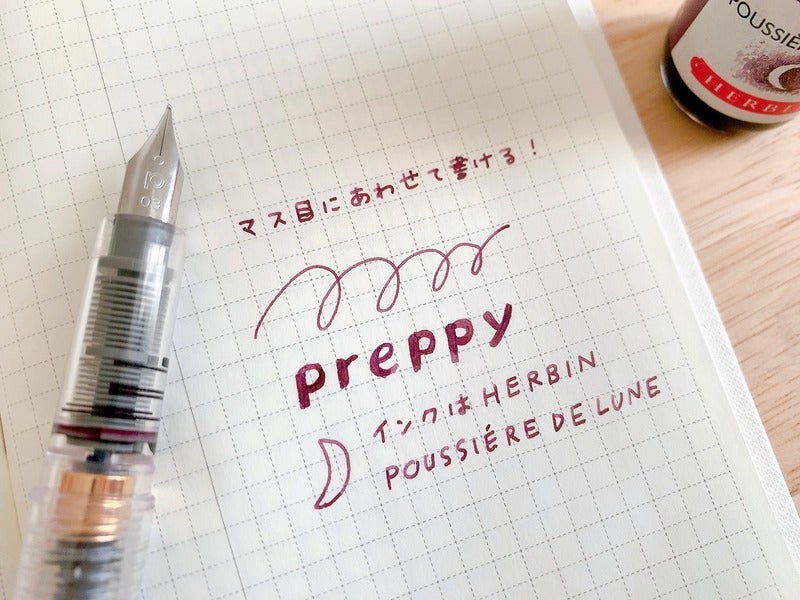 POUSSIÈ
HERBI
マス目にあわせて書ける!
preppy
インクは HERBIN
POUSSIÉRE DE LUNE
03